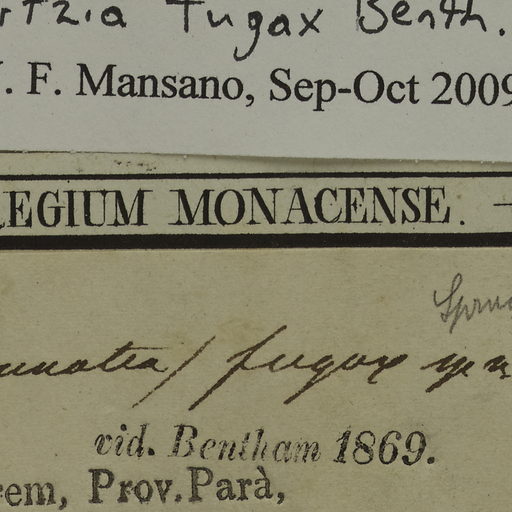 rtzia fugax Benth.
. F. Mansano, Sep-Oct 2009
REGIUM MONACENSE. —
Spruc
unatea / fugax
vid. Bentham 1869.
rem, Prov. Parà,